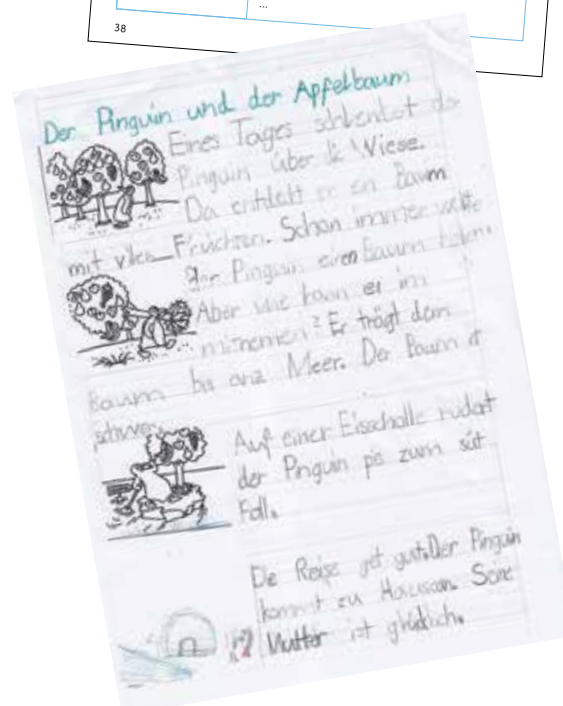 ...
38
Der Pinguin und der Apfelbaum
Eines Tages schlendet der
Pinguin über die Wiese.
Da entdekt er en Baum
mit vilen Früchten. Schon immer wollte
der Pinguin einen Baum haben.
Aber wie kann er im
mitnemen? Er trägt dem
Baum bis anz Meer. Der Baum it
schwer.
Auf einer Eisscholle rudat
der Pinguin pis zum süt
Foll.
De Reise get gut. Der Pinguin
kommt zu Hause an. Seine
Mutter ist glücklich.